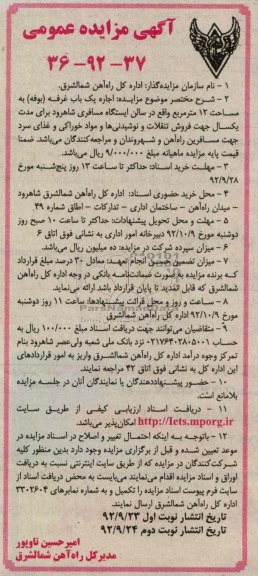 آگهی مزایده عمومی
۳۷- ۹۲- ۳۶
۱ - نام سازمان مزایده‌گذار: اداره کل راه‌آهن شمالشرق.
۲ - شرح مختصر موضوع مزایده: اجاره یک باب غرفه (بوفه) به
مساحت ۱۲ مترمربع واقع در سالن ایستگاه مسافری شاهرود برای مدت
یکسال جهت فروش تنقلات و نوشیدنی‌ها و مواد خوراکی و غذای سرد
جهت مسافرین راه‌آهن و شهروندان و مراجعه‌کنندگان می‌باشد. ضمنا
قیمت پایه مزایده ماهیانه مبلغ ۹/۰۰۰/۰۰۰ ریال می‌باشد.
۳ - مهلت خرید اسناد: حداکثر تا ساعت ۱۳ روز پنج‌شنبه مورخ
۹۲/۹/۲۸
۴ - محل خرید حضوری اسناد: اداره کل راه‌آهن شمالشرق شاهرود
- میدان راه‌آهن - ساختمان اداری - تدارکات - اطاق شماره ۴۹.
۵ - مهلت و محل تحویل پیشنهادات: حداکثر تا ساعت ۱۰ صبح روز
دوشنبه مورخ ۹۲/۱۰/۹ دبیرخانه امور اداری به نشانی فوق اتاق ۶
۶ - میزان سپرده شرکت در مزایده: ده میلیون ریال می‌باشد.
۷ - میزان تضمین حسن انجام تعهد: معادل ۳۰ درصد مبلغ قرارداد
که برنده مزایده به صورت ضمانت‌نامه بانکی در وجه اداره کل راه‌آهن
شمالشرق که قابل تمدید تا پایان قرارداد باشد ارائه می‌نماید.
۸ - ساعت و روز و محل قرائت پیشنهادها: ساعت ۱۱ روز دوشنبه
مورخ ۹۲/۱۰/۹ اداره کل راه‌آهن شمالشرق
۹ - متقاضیان می‌توانند جهت دریافت اسناد مبلغ ۱۰۰/۰۰۰ ریال به
حساب ۰۲۱۷۶۴۰۲۸۰۵۰۰۱ نزد بانک ملی شعبه ولی‌عصر شاهرود بنام
تمرکز وجوه درآمد اداره کل راه‌آهن شمالشرق واریز به امور قراردادهای
این اداره کل به نشانی فوق اتاق ۴۲ مراجعه نمایند.
۱۰ - حضور پیشنهاددهندگان یا نمایندگان آنان در جلسه مزایده
بلامانع است.
۱۱ - دریافت اسناد ارزیابی کیفی از طریق سایت
http://Iets.mporg.ir امکان‌پذیر می‌باشد.
۱۲ - باتوجه به اینکه احتمال تغییر و اصلاح در اسناد مزایده در
موعد تعیین شده و قبل از برگزاری مزایده وجود دارد بدین منظور کلیه
شرکت‌کنندگان در مزایده که از طریق سایت اینترنتی نسبت به دریافت
اوراق و اسناد مزایده اقدام می‌نمایند می‌بایست به محض دریافت اسناد از
سایت فرم پیوست اسناد مزایده را تکمیل و به شماره نمابرهای ۳۳۰۲۶۰۴
اداره کل راه‌آهن شمالشرق ارسال نمایند.
تاریخ انتشار نوبت اول ۹۲/۹/۲۳
تاریخ انتشار نوبت دوم ۹۲/۹/۲۴
امیرحسین تاوپور
مدیرکل راه‌آهن شمالشرق